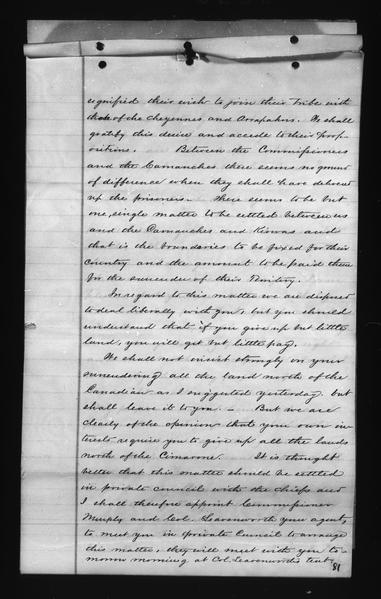 signified their wish to join their Tribe with
those of the Cheyennes and Arrapahos. We shall
gratify this desire and accede to their prop-
ositions. Between the Commissioners
and the Camanches there seems no ground
of difference when they shall have delivered
up the prisoners. There seems to be but
one, single matter to be settled between us
and the Camanches and Kiowas and
that is the boundaries to be fixed for their
Country and the amount to be paid them
for the surrender of their Territory.
In regard to this matter we are disposed
to deal liberally with you, but you should
understand that if you give up but little
land, you will get but little pay.
We shall not insist strongly on your
surrendering all the land north of the
Canadian as I suggested yesterday, but
shall leave it to you. - But we are
clearly of the opinion that your own in-
terests require you to give up all the lands
north of the Cimarone. It is thought
better that this matter should be settled
in private council with the chiefs and
I shall therefore appoint Commissioner
Murphy and Col. Leavenworth your agent,
to meet you in private Council to arrange
this matter, they will meet with you to-
morrow morning at Col. Leavenworths tent
81